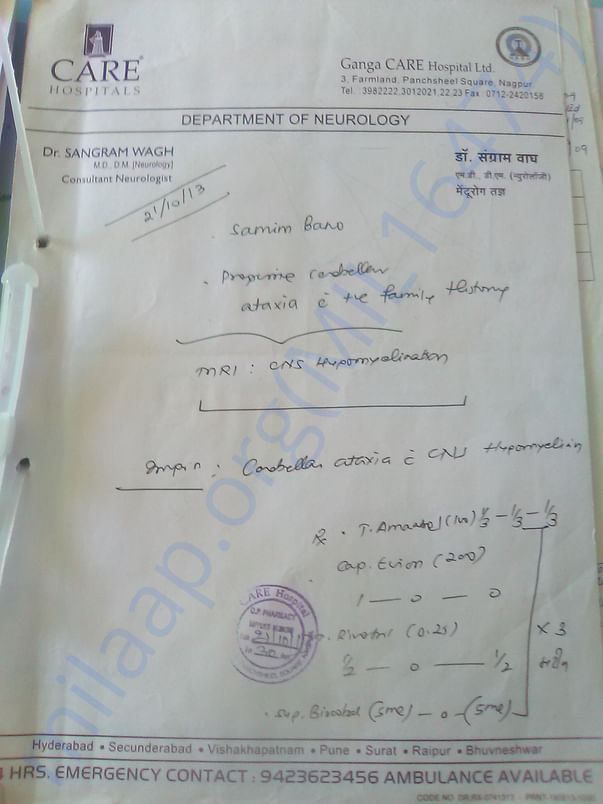 CARE
HOSPITALS
Ganga CARE Hospital Ltd.
3, Farmland, Panchsheel Square, Nagpur
Tel. : 3982222,3012021,22,23 Fax : 0712-2420156
DEPARTMENT OF NEUROLOGY
Dr. SANGRAM WAGH
M.D., D.M. [Neurology]
Consultant Neurologist
डॉ. संग्राम वाघ
एम.डी., डी.एम. (न्युरोलॉजी)
मेंदूरोग तज्ञ
21/10/13
Samim Bano
cerebellar
ataxia c̄ +ve family History
MRI : CNS Hypomyelination
Impn : Cerebellar ataxia c̄ CNS Hypomyelin
Rx . T. (100) 1/3 - 1/3 - 1/3
Cap. Evion (200)
1 — 0 — 0
Rivotril (0.25) x 3
1/2 — 0 — 1/2
Syp. (5ml) - 0 - (5ml)
CARE Hospital
O.P. PHARMACY
Hyderabad • Secunderabad • Vishakhapatnam • Pune • Surat • Raipur • Bhuvneshwar
4 HRS. EMERGENCY CONTACT : 9423623456 AMBULANCE AVAILABLE
milaap.org(MIL_16474)